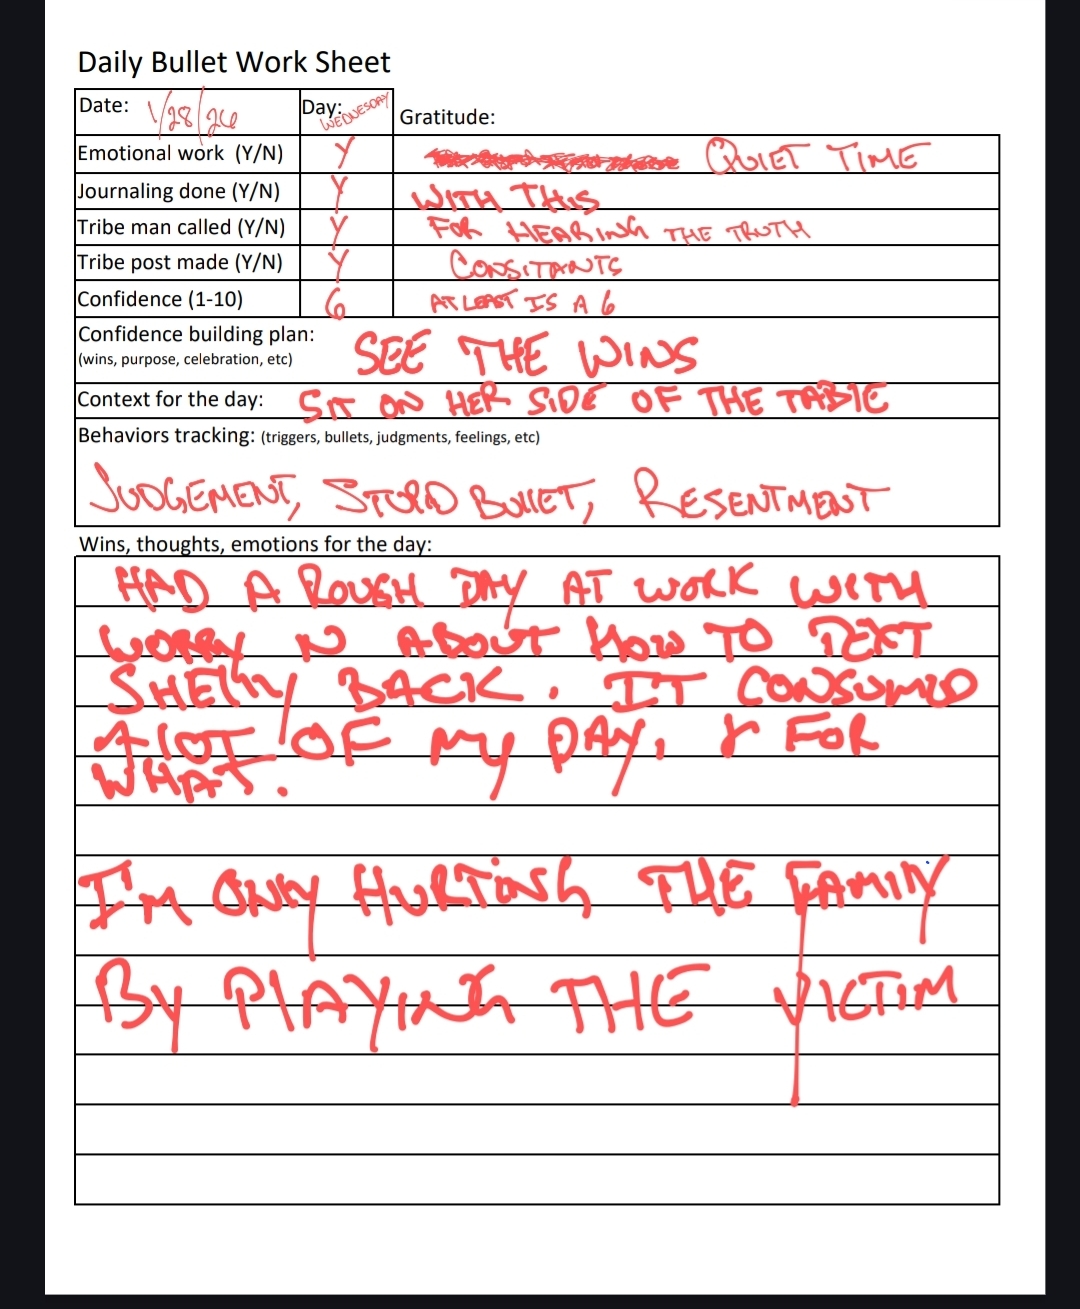 Daily Bullet Work Sheet
Date: 1/28/26 Day: WEDNESDAY Gratitude:
Emotional work (Y/N) Y QUIET TIME
Journaling done (Y/N) Y WITH THIS
Tribe man called (Y/N) Y FOR HEARING THE TRUTH
Tribe post made (Y/N) Y CONSITANTS
Confidence (1-10) 6 AT LEAST IS A 6
Confidence building plan: SEE THE WINS
(wins, purpose, celebration, etc)
Context for the day: SIT ON HER SIDE OF THE TABlE
Behaviors tracking: (triggers, bullets, judgments, feelings, etc)
JUDGEMENT, BUllET, RESENTMENT
Wins, thoughts, emotions for the day:
HAD A ROUGH DAY AT WORK WITH
WORRY N ABOUT HOW TO TEXT
SHElly BACK. IT CONSUMED
A lOT OF MY DAY, & FOR
WHAT.
I'M ONlY HURTING THE FAMIlY
BY PlAYING THE VICTIM